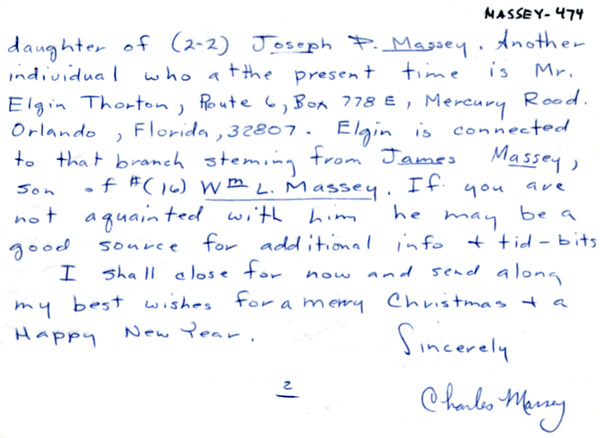 MASSEY-474
daughter of (2-2) Joseph P. Massey. Another
individual who at the present time is Mr.
Elgin Thorton, Route 6, Box 778 E, Mercury Road.
Orlando, Florida, 32807. Elgin is connected
to that branch steming from James Massey,
son of #(16) Wm L. Massey. If you are
not aquainted with him he may be a
good source for additional info + tid-bits
I shall close for now and send along
my best wishes for a merry Christmas + a
Happy New Year.
Sincerely
2
Charles Massey